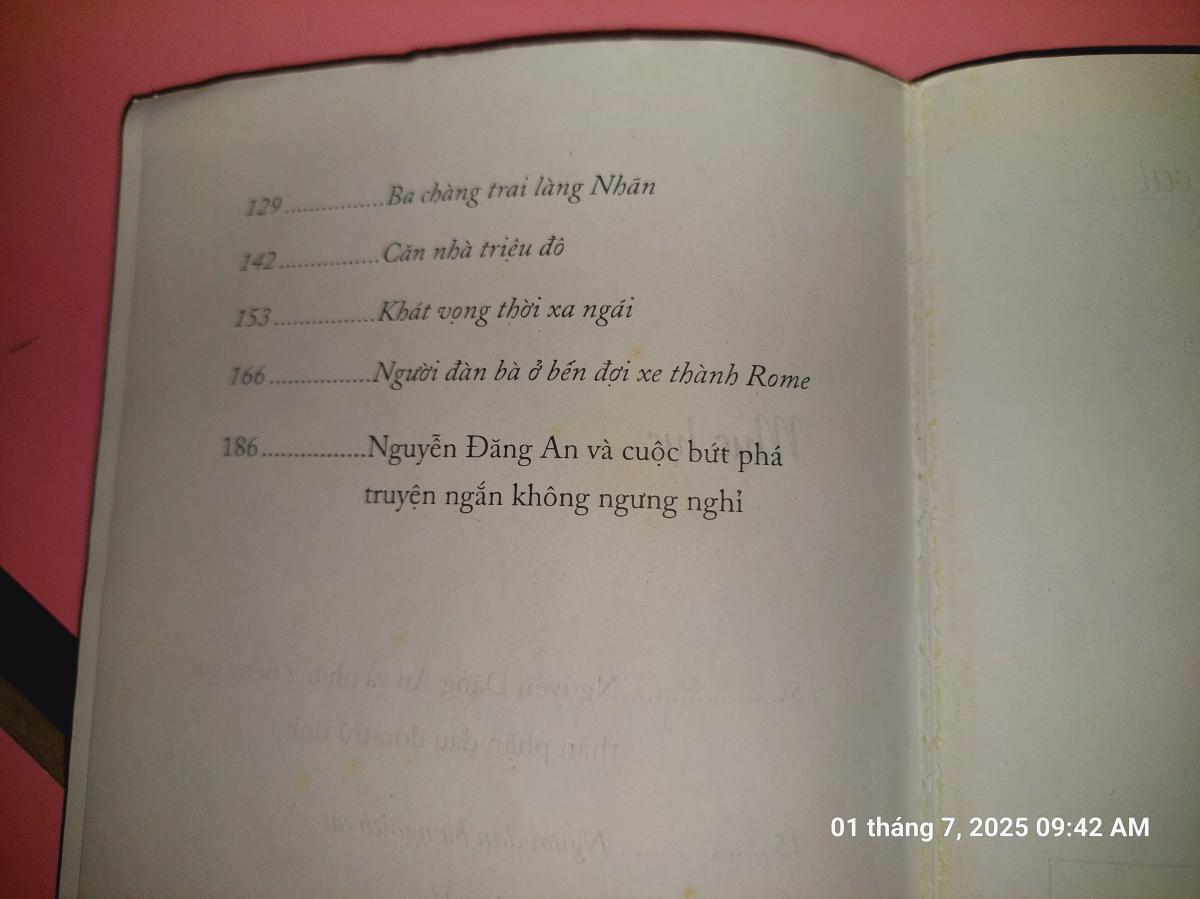 129................Ba chàng trai làng Nhãn
142................Căn nhà triệu đô
153................Khát vọng thời xa ngái
166................Người đàn bà ở bến đợi xe thành Rome
186................Nguyễn Đăng An và cuộc bứt phá
truyện ngắn không ngưng nghỉ
01 tháng 7, 2025 09:42 AM